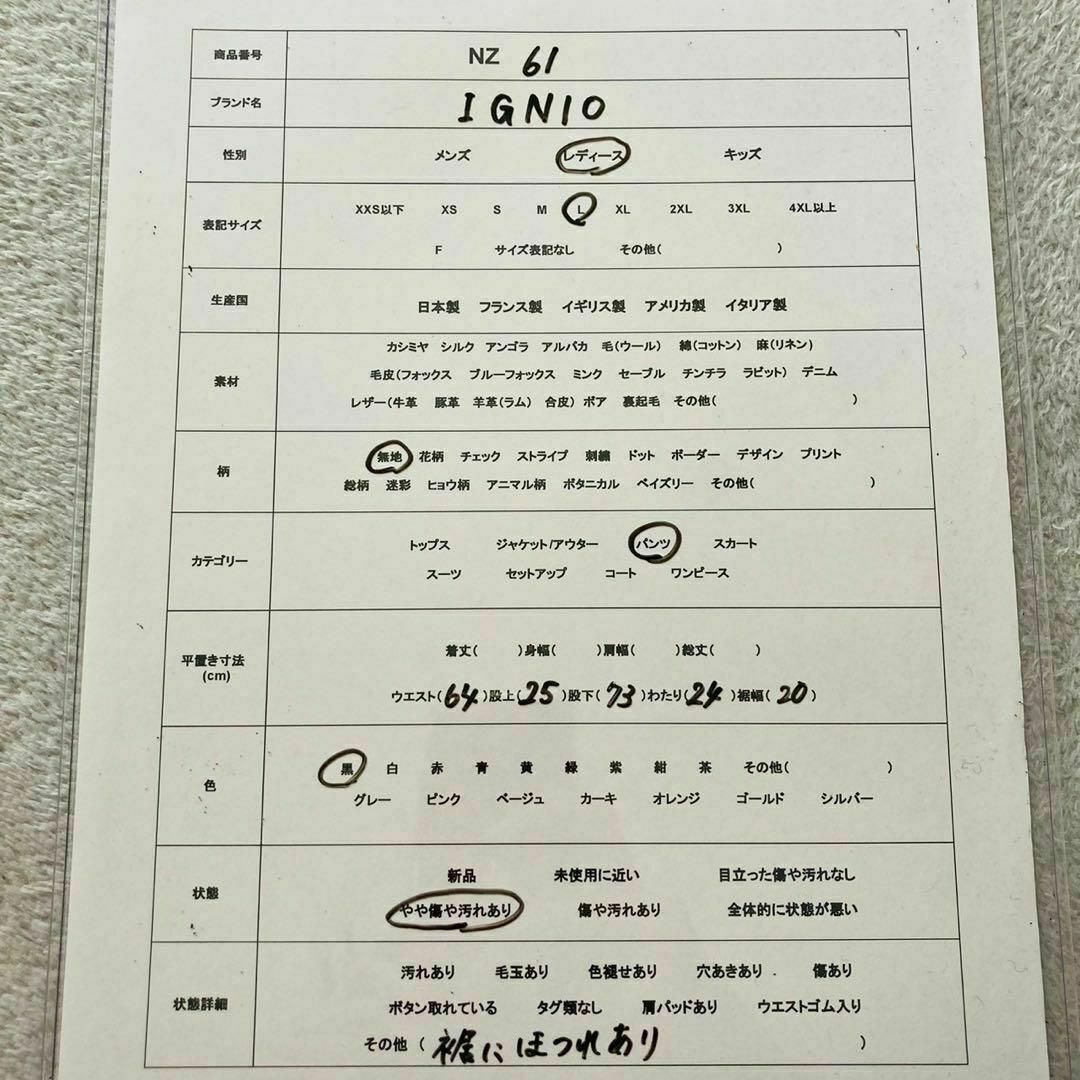 商品番号 NZ 61
ブランド名 IGNIO
性別 メンズ レディース キッズ
表記サイズ
XXS以下 XS S M L XL 2XL 3XL 4XL以上
F サイズ表記なし その他( )
生産国 日本製 フランス製 イギリス製 アメリカ製 イタリア製
素材
カシミヤ シルク アンゴラ アルパカ 毛(ウール) 綿(コットン) 麻(リネン)
毛皮(フォックス ブルーフォックス ミンク セーブル チンチラ ラビット) デニム
レザー(牛革 豚革 羊革(ラム) 合皮) ボア 裏起毛 その他( )
柄
無地 花柄 チェック ストライプ 刺繍 ドット ボーダー デザイン プリント
総柄 迷彩 ヒョウ柄 アニマル柄 ボタニカル ペイズリー その他( )
カテゴリー
トップス ジャケット/アウター パンツ スカート
スーツ セットアップ コート ワンピース
平置き寸法
(cm)
着丈( )身幅( )肩幅( )総丈( )
ウエスト(64)股上(25)股下(73)わたり(24)裾幅(20)
色
黒 白 赤 青 黄 緑 紫 紺 茶 その他( )
グレー ピンク ベージュ カーキ オレンジ ゴールド シルバー
状態
新品 未使用に近い 目立った傷や汚れなし
やや傷や汚れあり 傷や汚れあり 全体的に状態が悪い
状態詳細
汚れあり 毛玉あり 色褪せあり 穴あきあり 傷あり
ボタン取れている タグ類なし 肩パッドあり ウエストゴム入り
その他 ( 裾にほつれあり )